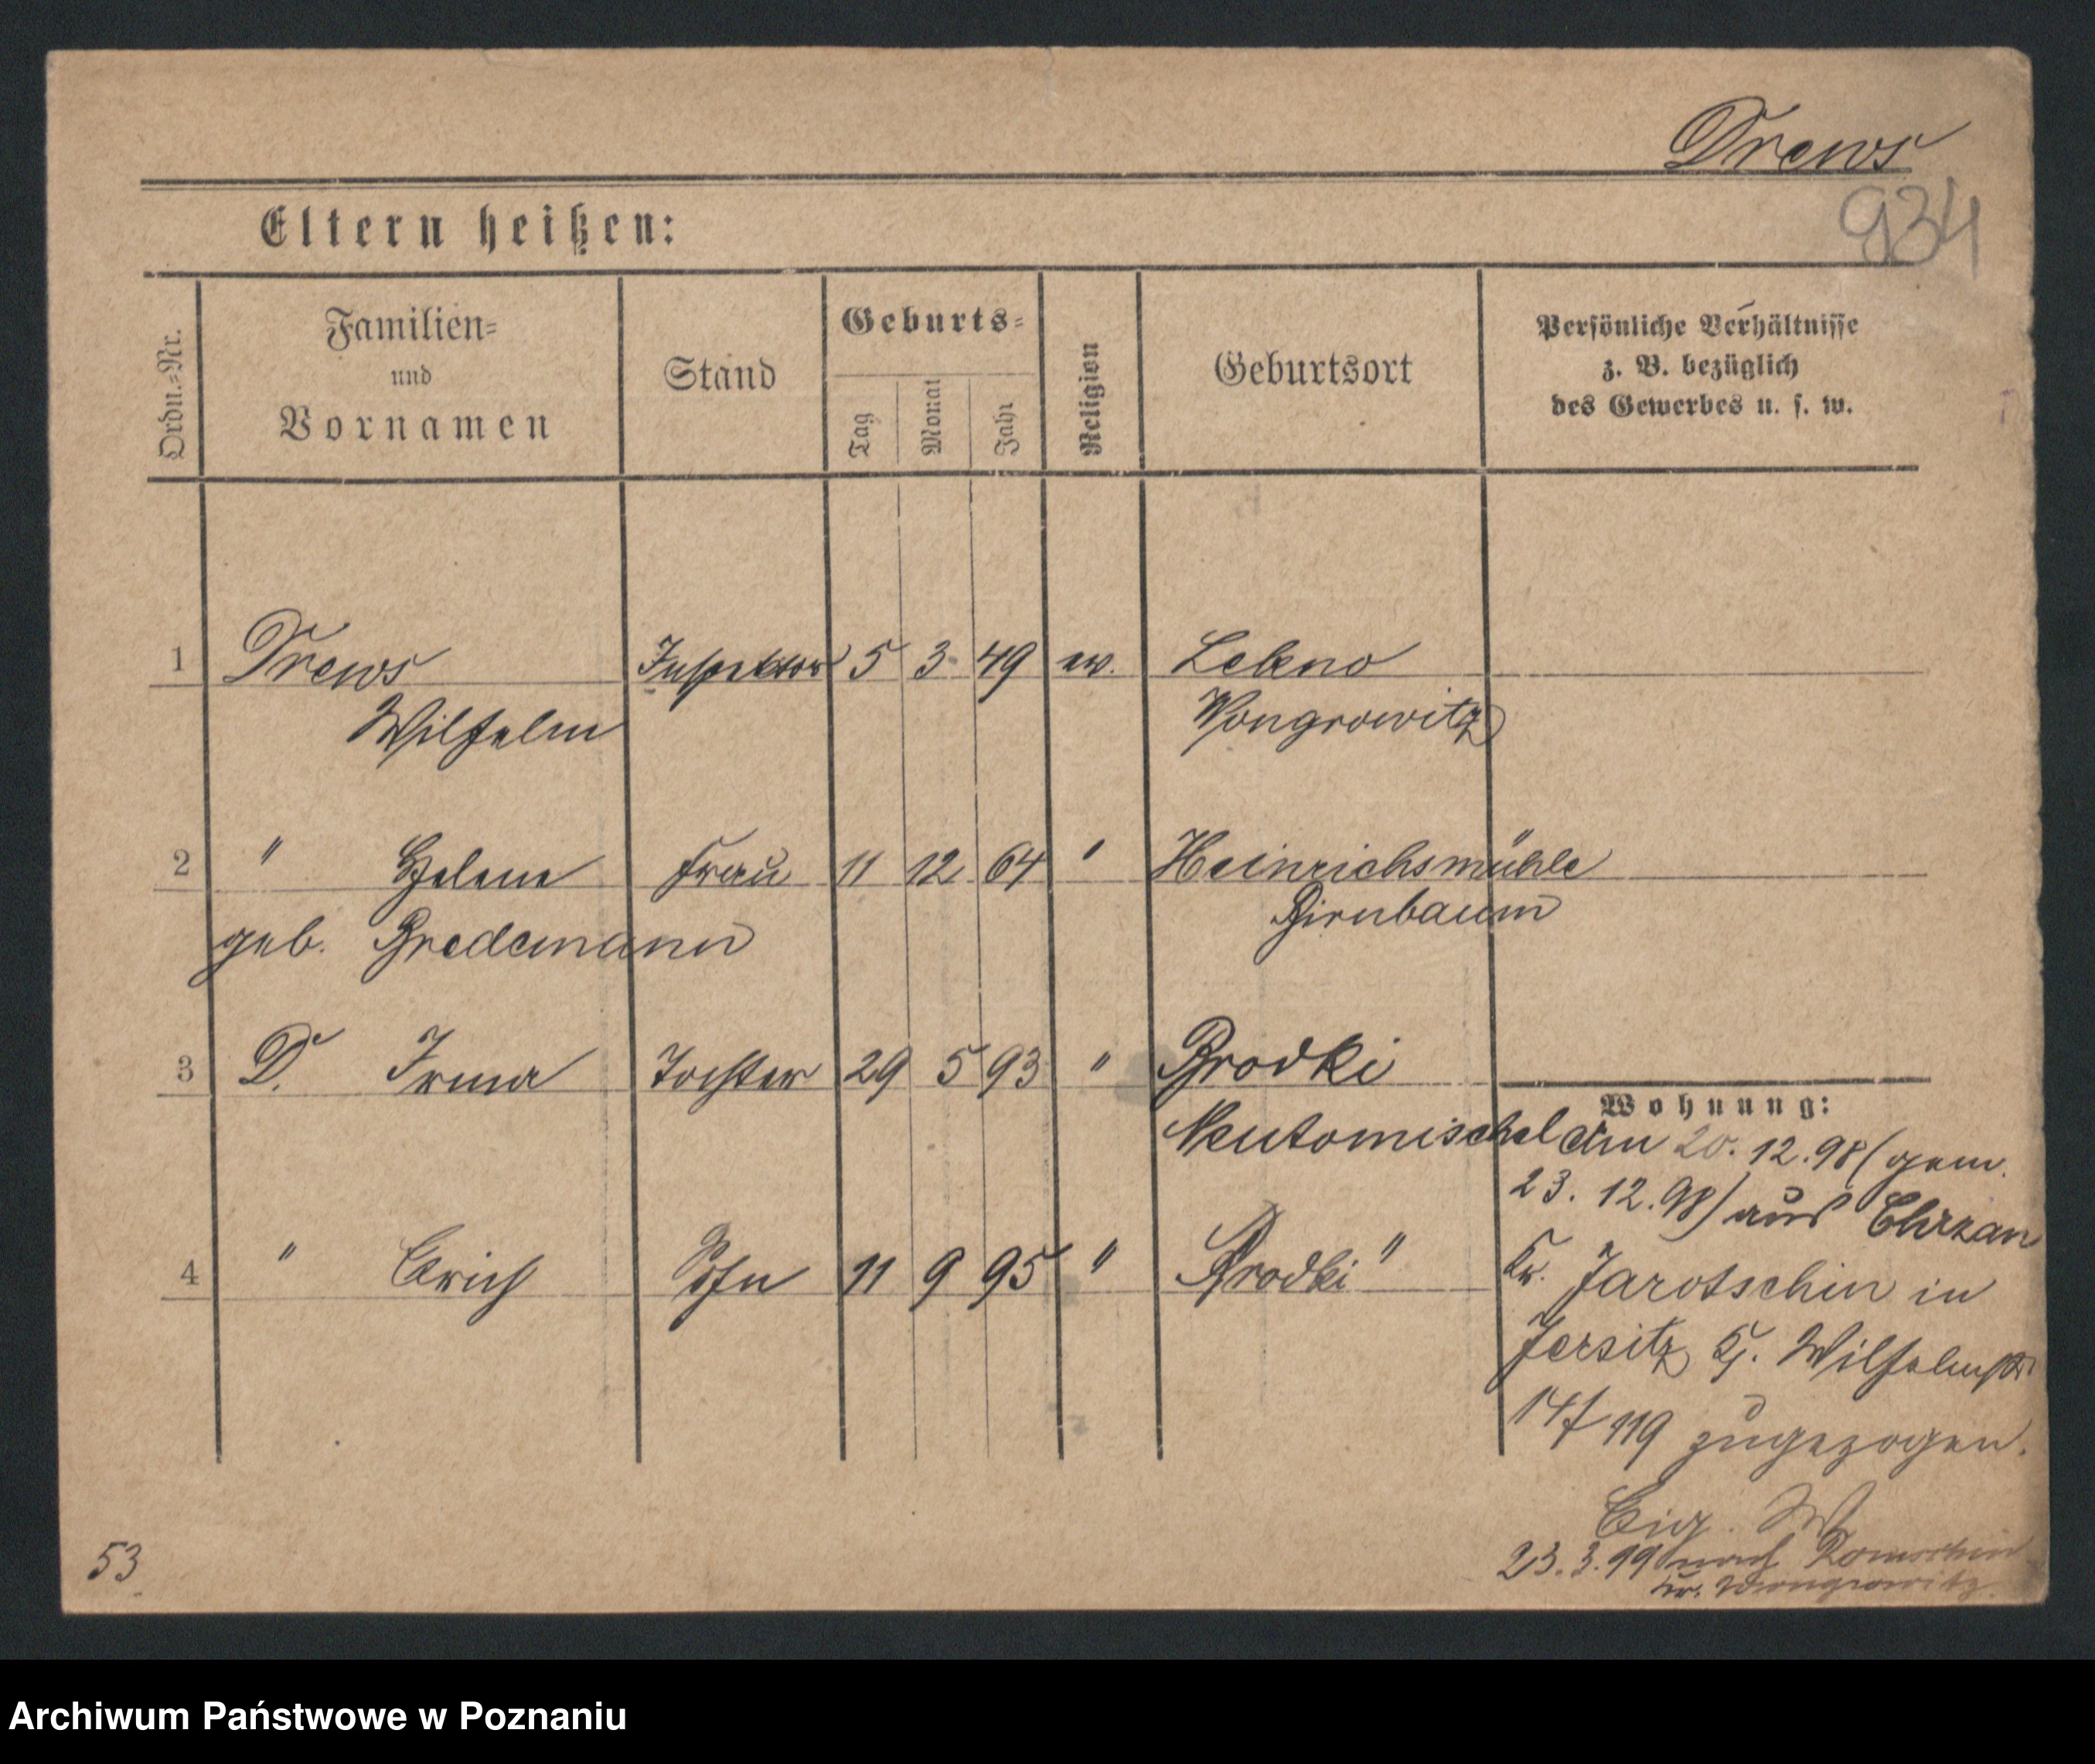 Drews
934
Eltern heißen:
Ordn.=Nr.
Familien=
und
Vornamen
Stand
Geburts=
Tag
Monat
Jahr
Religion
Geburtsort
Persönliche Verhältnisse
z. B. bezüglich
des Gewerbes u. s. w.
1 Drews Inspektor 5 3 49 ev. Lekno
Wilhelm Wongrowitz
2 " Helene Frau 11 12 64 " Heinrichsmühle
geb. Bredemann Birnbaum
3 D. Irma Tochter 29 5 93 " Brodki
Neutomischel
4 " Erich Sohn 11 9 95 " Brodki "
Wohnung:
Am 20. 12. 98 (gem.
23. 12. 98) aus Chrzan
Kr. Jarotschin in
Jersitz Gr. Wilhelmstr.
117/119 zugezogen.
23. 3. 99 nach
Kr. Wongrowitz
53
Archiwum Państwowe w Poznaniu